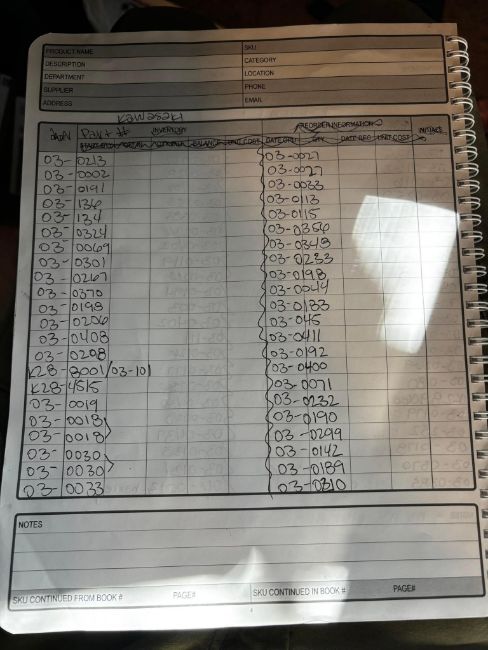 PRODUCT NAME
SKU
DESCRIPTION
CATEGORY
DEPARTMENT
LOCATION
SUPPLIER
PHONE
ADDRESS
EMAIL
Kawasaki
Part #
INVENTORY
REORDER INFORMATION
INITIALS
BALANCE UNIT COST DATE ORD QTY DATE REC UNIT COST
03-0213
03-0002
03-0191
03-136
03-134
03-0324
03-0069
03-0301
03-0267
03-0370
03-0198
03-0206
03-0408
03-0208
K28-3001/03-101
K28-4515
03-0019
03-0018
03-0018
03-0030
03-0030
03-0033
03-0027
03-0027
03-0033
03-0113
03-0115
03-0356
03-0348
03-0233
03-0198
03-0044
03-0133
03-045
03-0411
03-0192
03-0400
03-0071
03-0232
03-0190
03-0299
03-0142
03-0189
03-0310
NOTES
SKU CONTINUED FROM BOOK # PAGE#
SKU CONTINUED IN BOOK # PAGE#